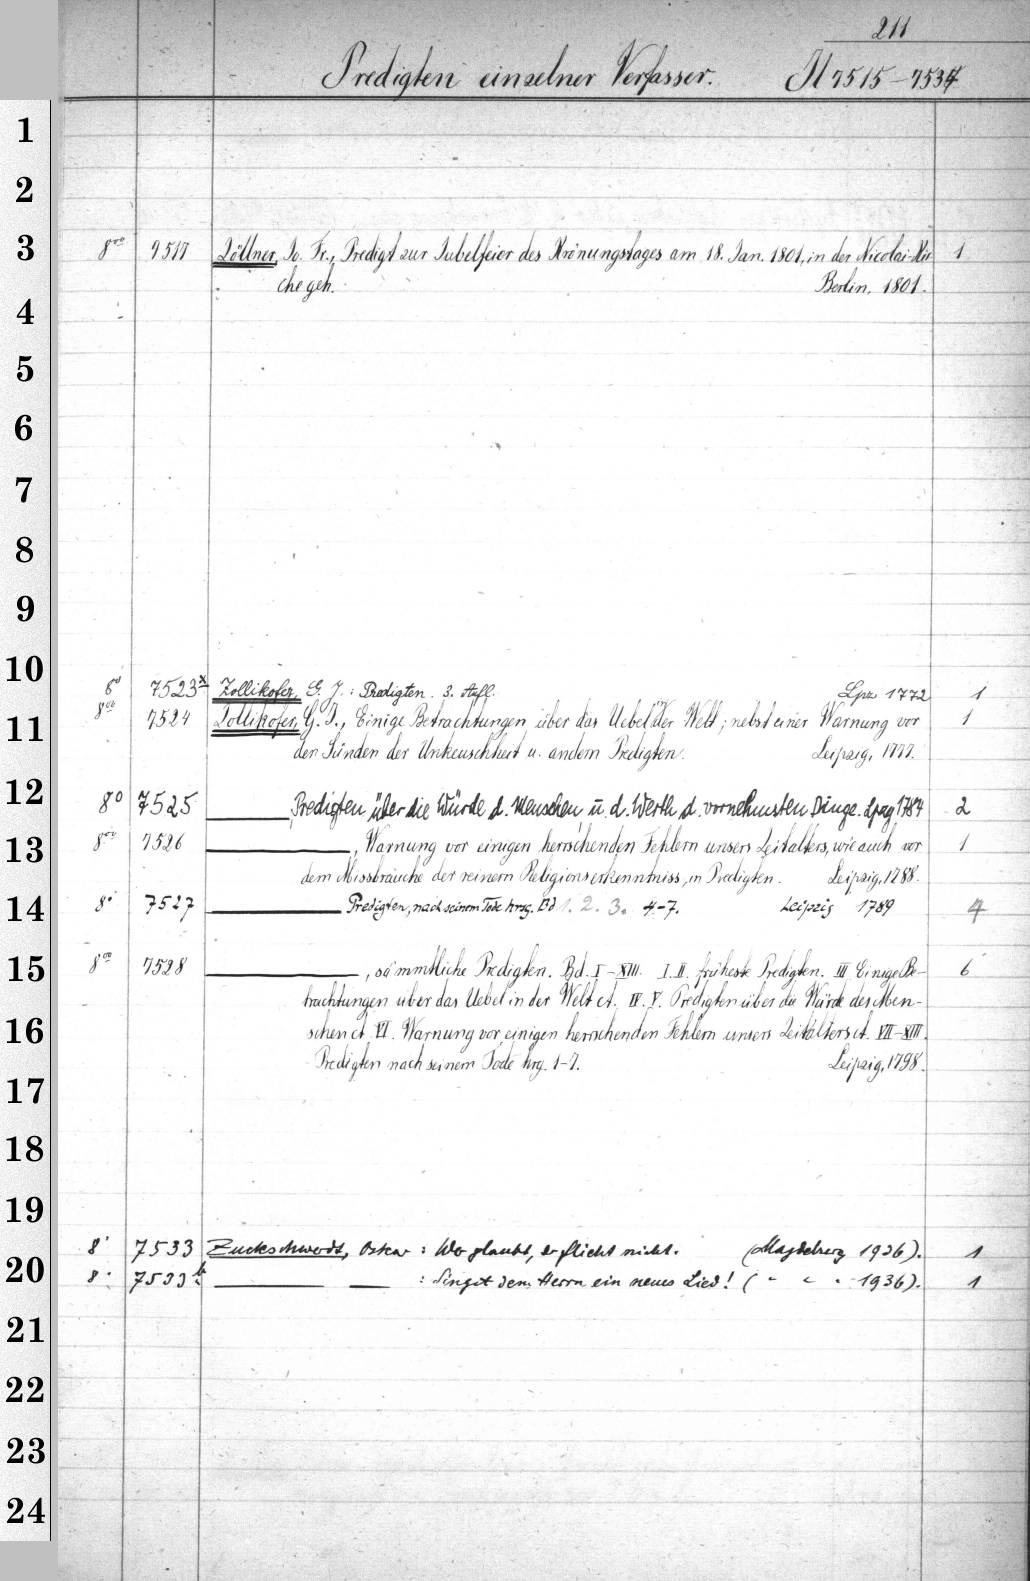 211
Predigten einzelner Verfasser. H 7515–7534
1
2
3
4
5
6
7
8
9
10
11
12
13
14
15
16
17
18
19
20
21
22
23
24
8vo 7517 Zöllner, Jo. Fr., Predigt zur Jubelfeier des Krönungstages am 18. Jan. 1801, in der Nicolai-Kir 1
che geh. Berlin, 1801.
8° 7523x Zollikofer, G. J.: Predigten. 3. Aufl. Lpz 1772 1
8vo 7524 Zollikofer, G. J., Einige Betrachtungen über das Uebel in der Welt; nebst einer Warnung vor 1
den Sünden der Unkeuschheit u. andern Predigten. Leipzig, 1777.
8° 7525 ———, Predigten über die Würde d. Menschen, u. d. Werth d. vornehmsten Dinge. Lpzg, 1784 2
8vo 7526 ———, Warnung vor einigen herrschenden Fehlern unsers Zeitalters, wie auch vor 1
dem Missbrauche der reinern Religionserkenntniss, in Predigten. Leipzig, 1788.
8° 7527 ——— Predigten, nach seinem Tode hrsg. Bd 1. 2. 3. 4–7. Leipzig 1789 7
8vo 7528 ———, sämmtliche Predigten. Bd. I–XIII. I. II. früheste Predigten. III Einige Be- 6
trachtungen über das Uebel in der Welt ct. IV. V. Predigten über die Würde des Men-
schen ct. VI. Warnung vor einigen herrschenden Fehlern unsers Zeitalters ct. VII–XIII.
Predigten nach seinem Tode hrg. 1–7. Leipzig, 1798.
8° 7533 Zuckschwerdt, Oskar: Wer glaubt, der flieht nicht. (Magdeburg 1936). 1
8° 7533b ——— ——— : Singet dem Herrn ein neues Lied! ( " " " 1936). 1